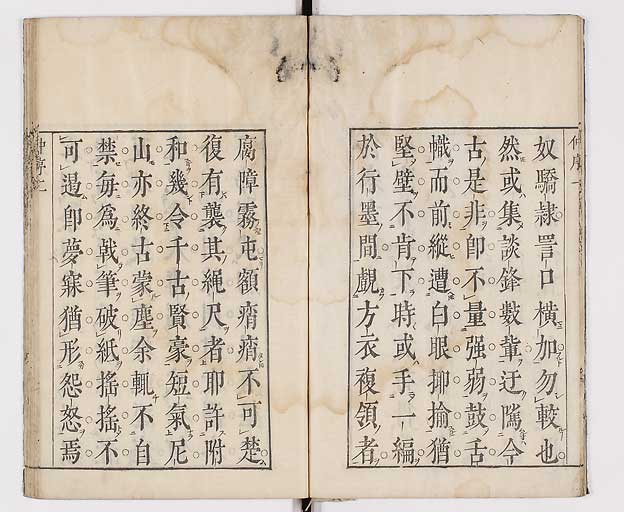 奴驕隷詈口橫加勿較也
然或集談鋒數輩迂儁今
古是非卽不量强弱鼓舌
幟而前縱遭白眼揶揄猶
堅壁不肯下時或手一編
於行墨間覷方衣複領者
腐嶂霧屯額瘠瘠不可楚
復有襲其繩尺者耶許附
和幾令千古賢豪短氣尼
山亦終古蒙塵余輒不自
禁每爲戟筆破紙搖搖不
可遏卽夢寐猶形怨怒焉